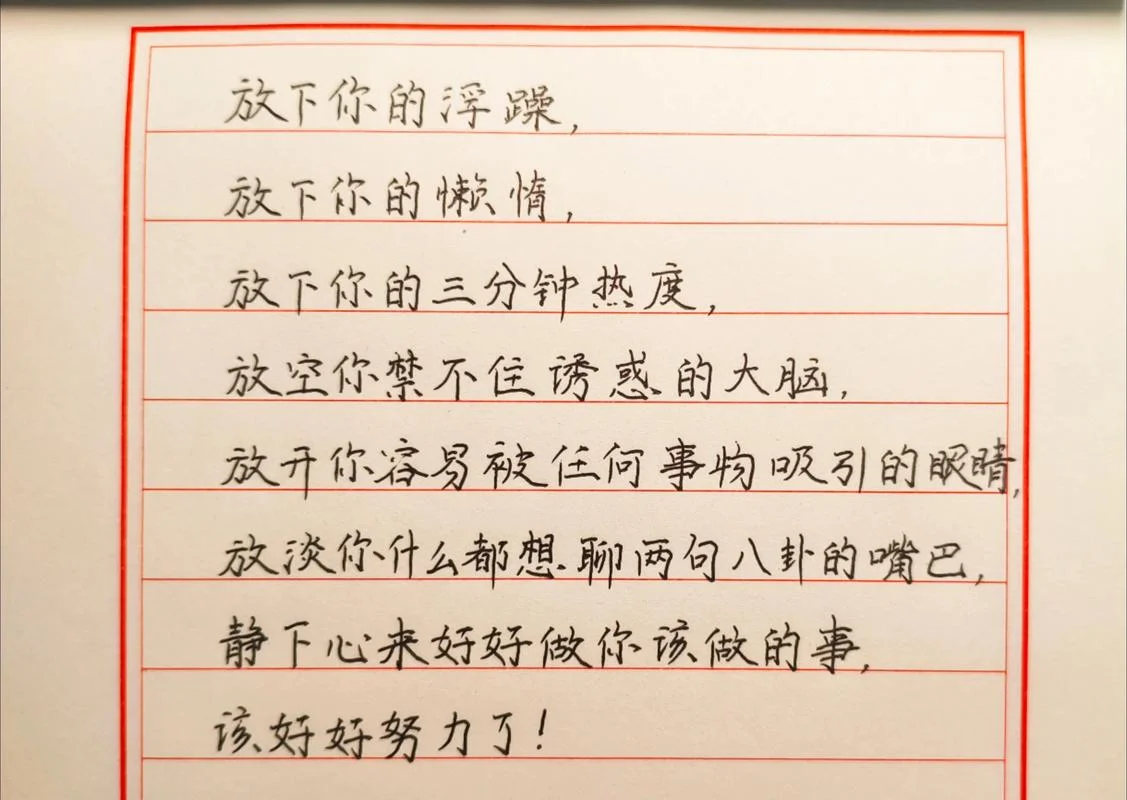 放下你的浮躁,
放下你的懒惰,
放下你的三分钟热度,
放空你禁不住诱惑的大脑,
放开你容易被任何事物吸引的眼睛,
放淡你什么都想聊两句八卦的嘴巴,
静下心来好好做你该做的事,
该好好努力了!